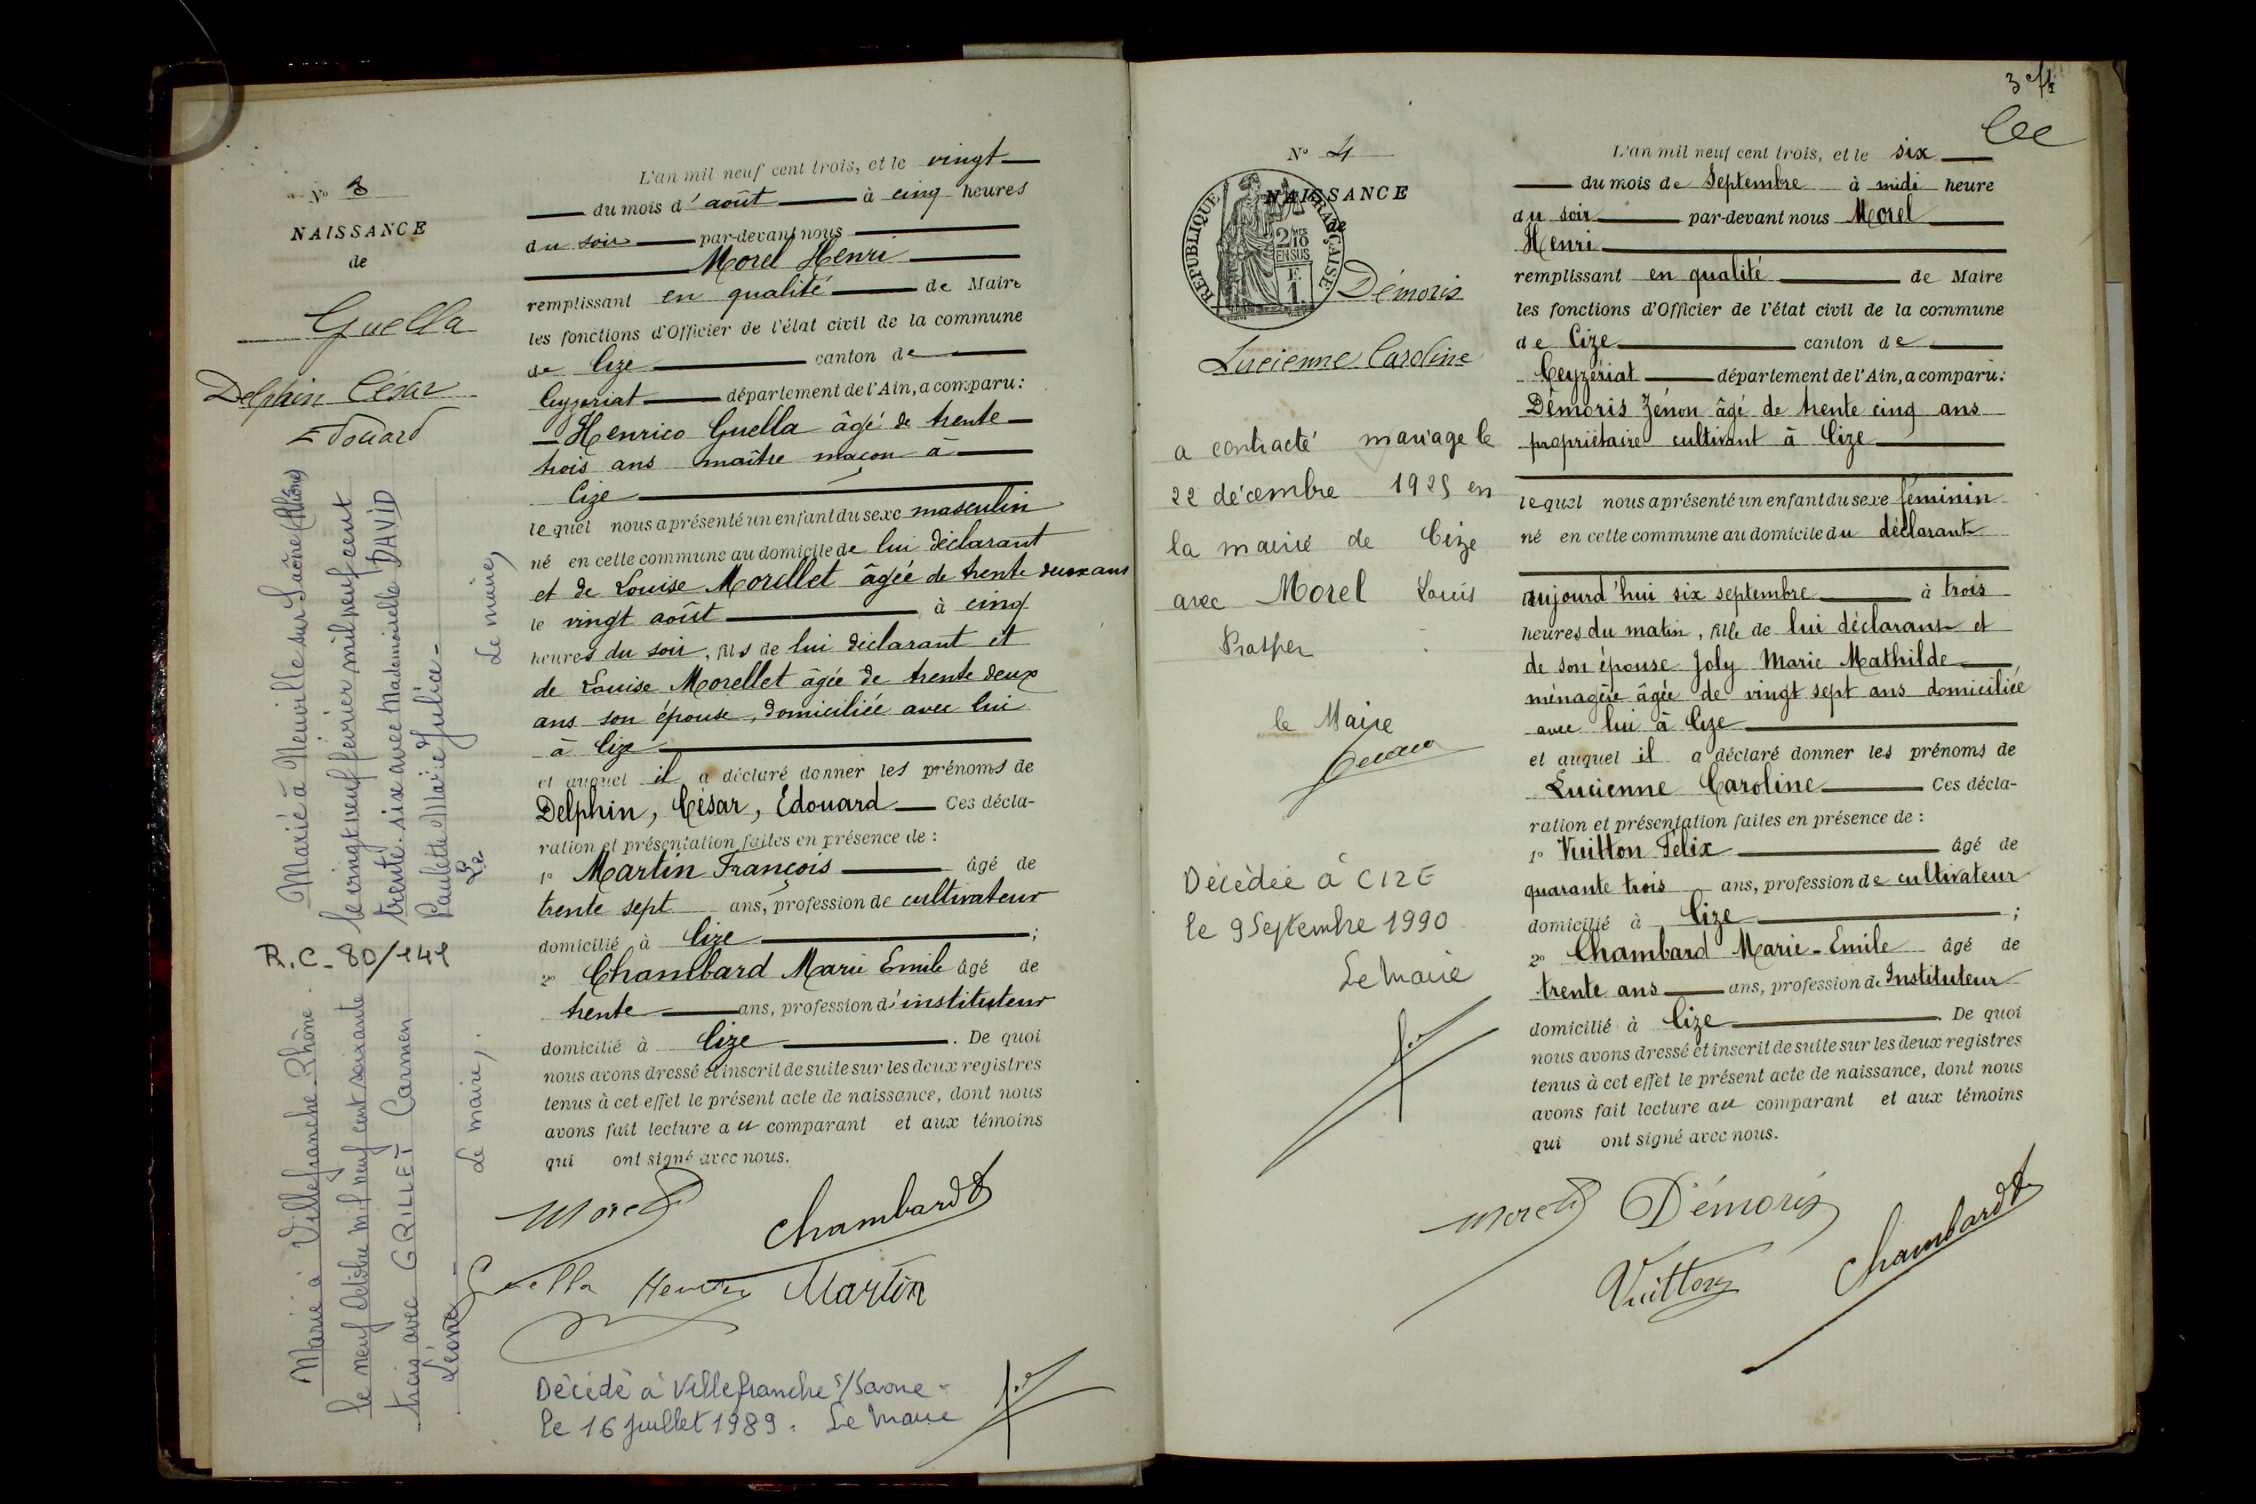 N° 3
NAISSANCE
de
Guella
Delphin César
Edouard
Marié à Neuville sur Saône (Rhône)
le vingt neuf février mil neuf cent
trente-six avec Mademoiselle DAVID
Paulette Marie Julice-
Le maire,
R.C. 80/141
Marié à Villefranche Rhône
le neuf Octobre mil neuf cent soixante
trois avec GRILLET Carmen
Léone
Le maire,
L'an mil neuf cent trois, et le vingt
du mois d'août à cinq heures
du soir par-devant nous
Morel Henri
remplissant en qualité de Maire
les fonctions d'Officier de l'état civil de la commune
de Cize canton de
Ceyzeriat département de l'Ain, a comparu:
Henrico Guella âgé de trente
trois ans maître maçon à
Cize
lequel nous a présenté un enfant du sexe masculin
né en cette commune au domicile de lui déclarant
et de Louise Morellet âgée de trente deux ans
le vingt août à cinq
heures du soir, fils de lui déclarant et
de Louise Morellet âgée de trente deux
ans son épouse, domiciliée avec lui
à Cize
et auquel il a déclaré donner les prénoms de
Delphin, César, Edouard Ces décla-
ration et présentation faites en présence de :
1° Martin François âgé de
trente sept ans, profession de cultivateur
domicilié à Cize ;
2° Chambard Marie Emile âgé de
trente ans, profession d'instituteur
domicilié à Cize . De quoi
nous avons dressé et inscrit de suite sur les deux registres
tenus à cet effet le présent acte de naissance, dont nous
avons fait lecture au comparant et aux témoins
qui ont signé avec nous.
Morel
Chambard
Guella Henrico Martin
Décédé à Villefranche s/Saone -
le 16 juillet 1989. Le Maire
3
N° 4
NAISSANCE
de
RÉPUBLIQUE FRANÇAISE
2/10 MES
EN SUS
F.
1.
Démoris
Lucienne Caroline
a contracté mariage le
22 décembre 1925 en
la mairie de Cize
avec Morel Louis
Prosper
le Maire
Décédée à CIZE
le 9 Septembre 1990
Le Maire
L'an mil neuf cent trois, et le six
du mois de Septembre à midi heure
du soir par-devant nous Morel
Henri
remplissant en qualité de Maire
les fonctions d'Officier de l'état civil de la commune
de Cize canton de
Ceyzériat département de l'Ain, a comparu:
Démoris Zénon âgé de trente cinq ans
propriétaire cultivant à Cize
lequel nous a présenté un enfant du sexe féminin
né en cette commune au domicile du déclarant
aujourd'hui six septembre à trois
heures du matin, fille de lui déclarant et
de son épouse Joly Marie Mathilde
ménagère âgée de vingt sept ans domiciliée
avec lui à Cize
et auquel il a déclaré donner les prénoms de
Lucienne Caroline Ces décla-
ration et présentation faites en présence de :
1° Vuitton Félix âgé de
quarante trois ans, profession de cultivateur
domicilié à Cize ;
2° Chambard Marie-Emile âgé de
trente ans ans, profession d'Instituteur
domicilié à Cize . De quoi
nous avons dressé et inscrit de suite sur les deux registres
tenus à cet effet le présent acte de naissance, dont nous
avons fait lecture au comparant et aux témoins
qui ont signé avec nous.
Morel Démoris
Vuitton Chambard